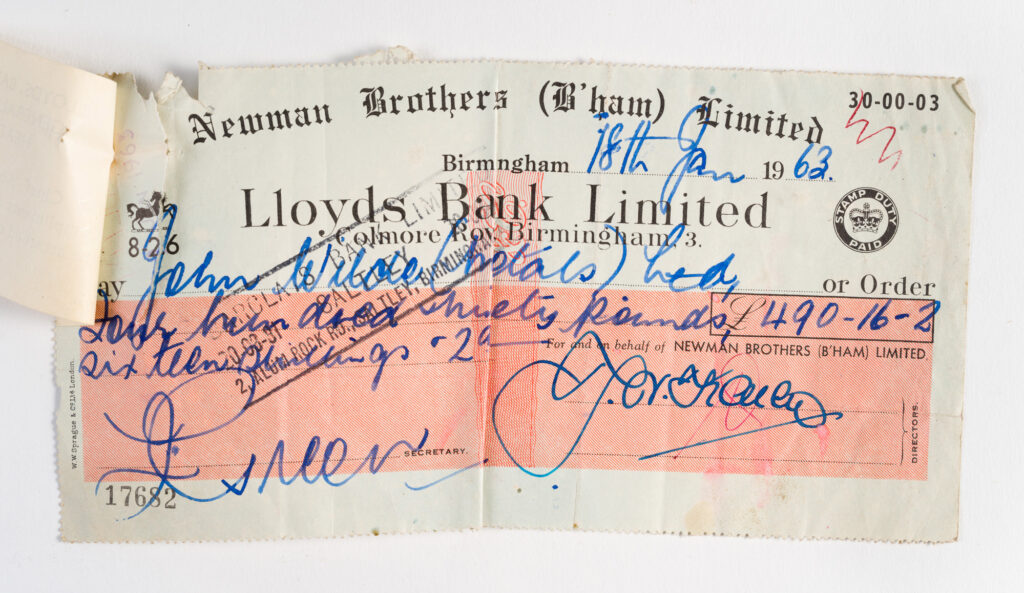 Newman Brothers (B'ham) Limited
30-00-03
Birmngham 18th Jan 1963.
Lloyds Bank Limited
Colmore Row, Birmingham, 3.
STAMP DUTY PAID
826
ay John Wilde (Metals) Ltd, or Order
Four hundred & ninety pounds, £490-16-2
sixteen shillings - 2d
For and on behalf of NEWMAN BROTHERS (B'HAM) LIMITED.
BARCLAYS BANK LIMITED
SALTLEY
2, ALUM ROCK RD, SALTLEY, BIRMINGHAM
SECRETARY.
DIRECTORS.
17682
W.W. Sprague & Co. Ltd London.